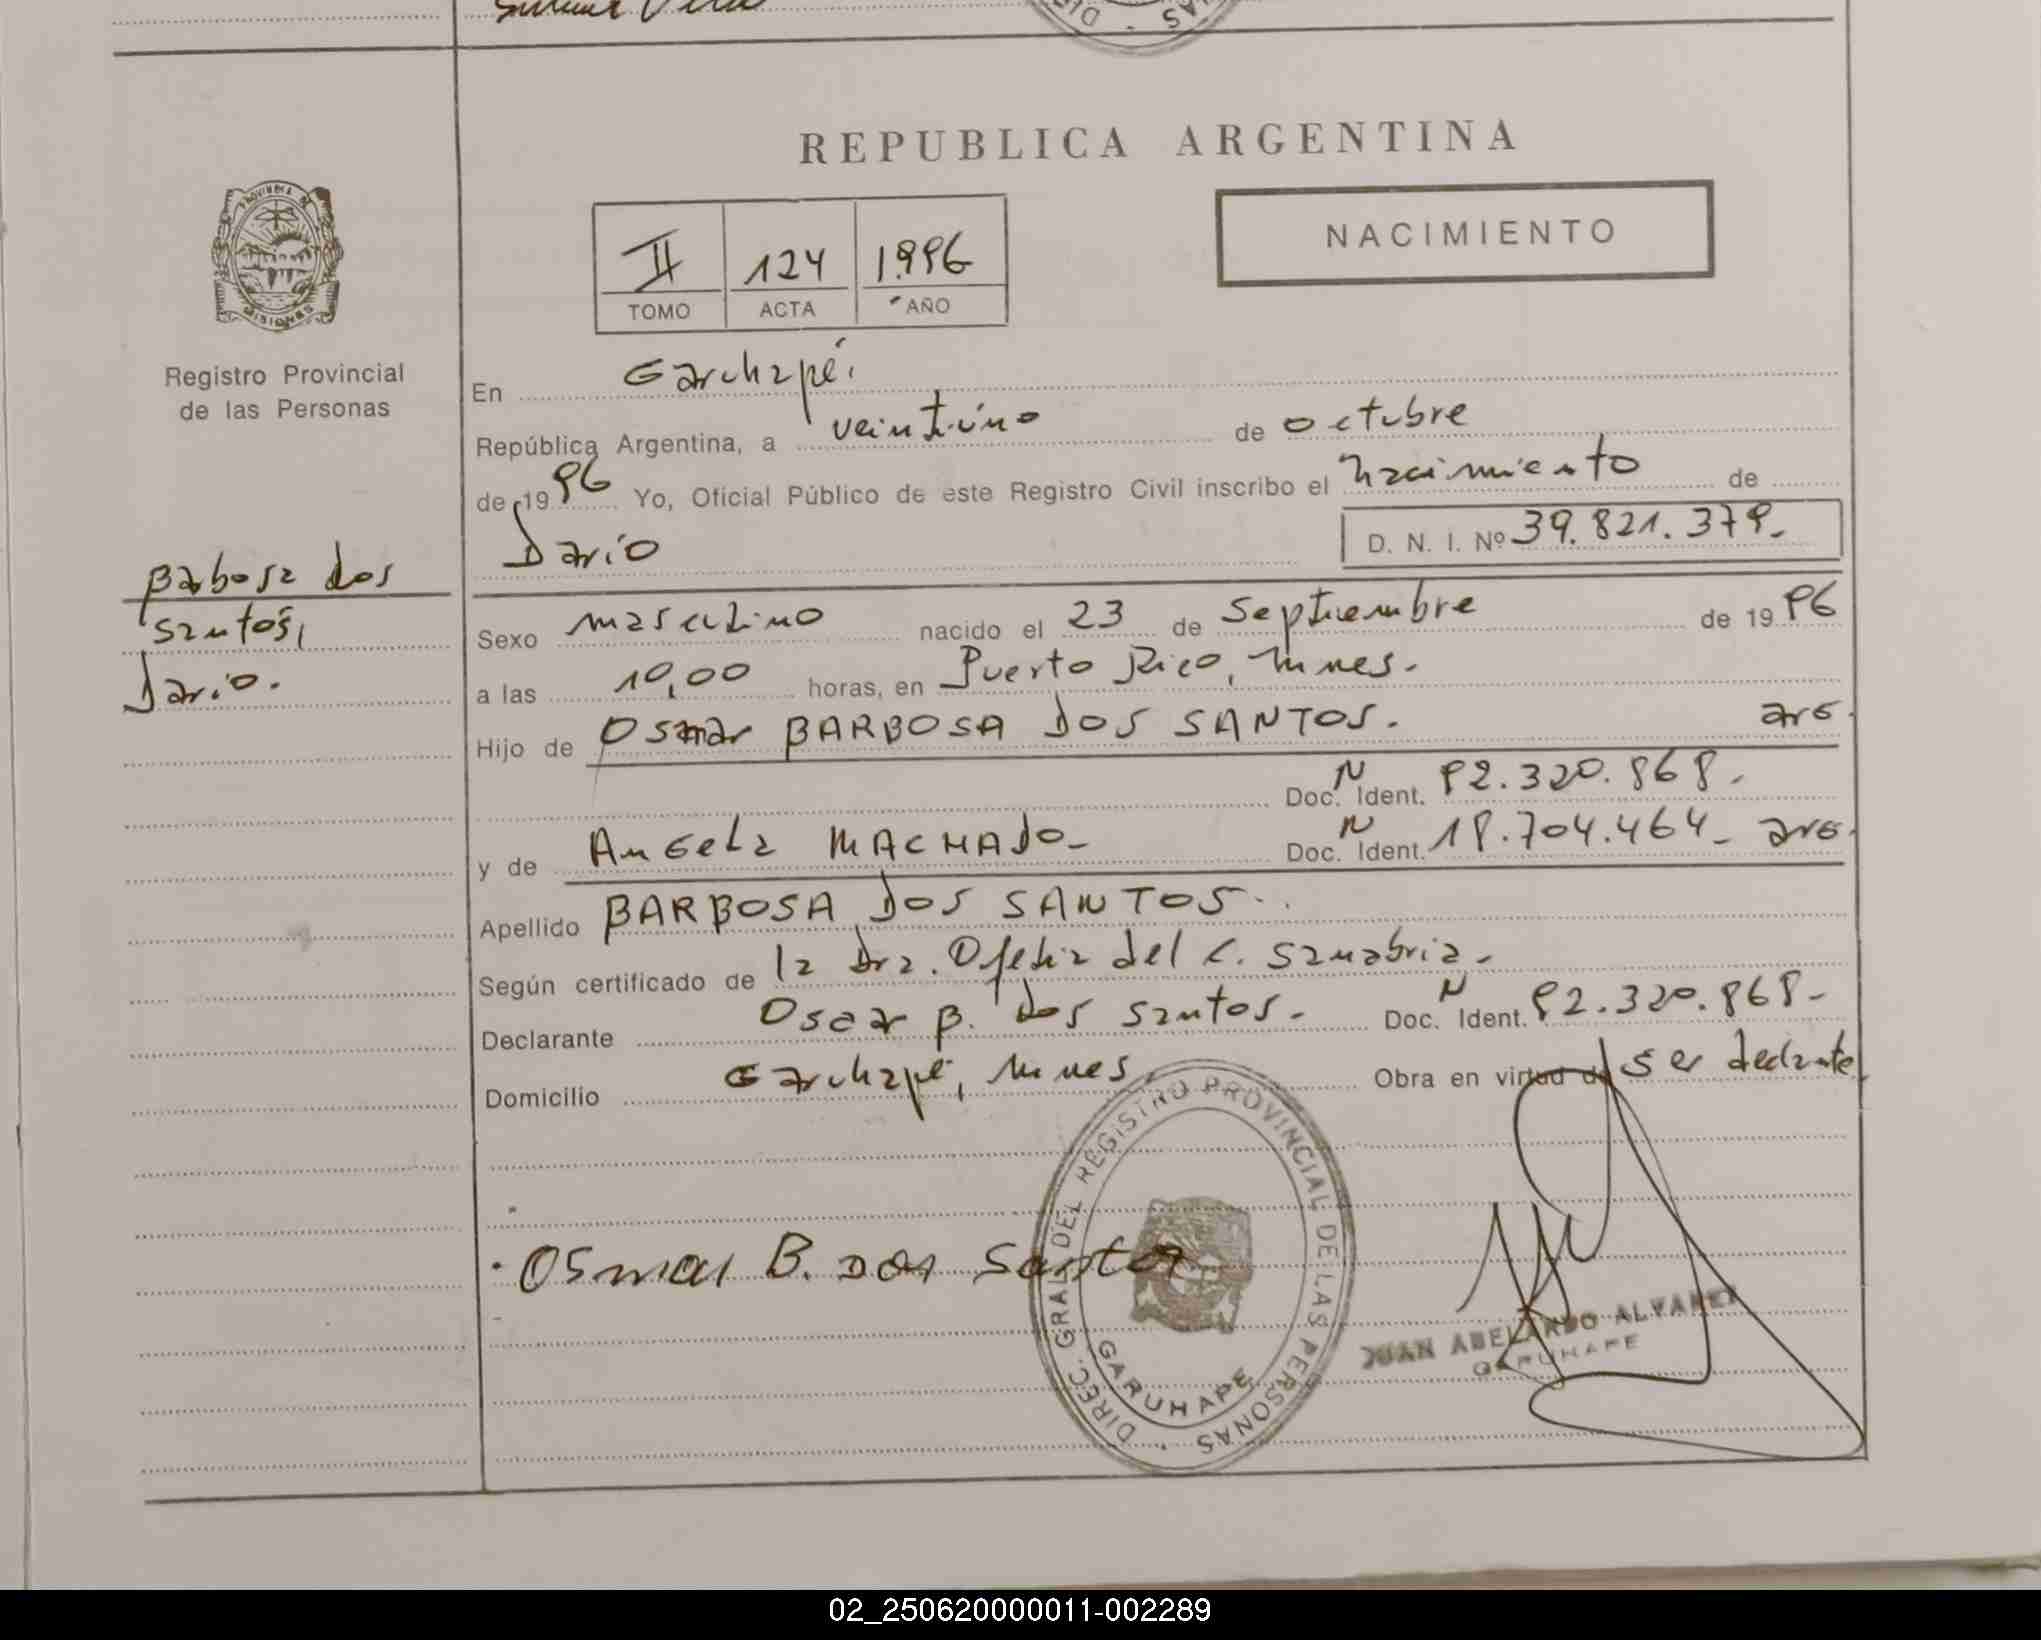 REPUBLICA ARGENTINA
PROVINCIA DE
MISIONES
NACIMIENTO
II 124 1.996
TOMO ACTA AÑO
Registro Provincial
de las Personas
En Garuhapé.
República Argentina, a veintiúno de octubre
de 19 96 Yo, Oficial Público de este Registro Civil inscribo el nacimiento de
Darío D. N. I. Nº 39.821.379.-
Barbosa dos
santos,
Darío.
Sexo masculino nacido el 23 de Septiembre de 19 96
a las 10,00 horas, en Puerto Rico, Mnes.
Hijo de Osmar BARBOSA DOS SANTOS. arg.
Doc. Ident. N 92.320.868.-
y de Angela MACHADO- Doc. Ident. N 18.704.464- arg.
Apellido BARBOSA DOS SANTOS..
Según certificado de la Dra. Ofelia del C. Sanabria.-
Declarante Oscar B. dos santos.- Doc. Ident. N 92.320.868-
Domicilio Garuhapé, Mnes. Obra en virtud de ser declarante
Osmar B. Dos Santos
DIREC. GRAL. DEL REGISTRO PROVINCIAL DE LAS PERSONAS
GARUHAPE
JUAN ABELARDO ALVAREZ
GARUHAPE
02_250620000011-002289